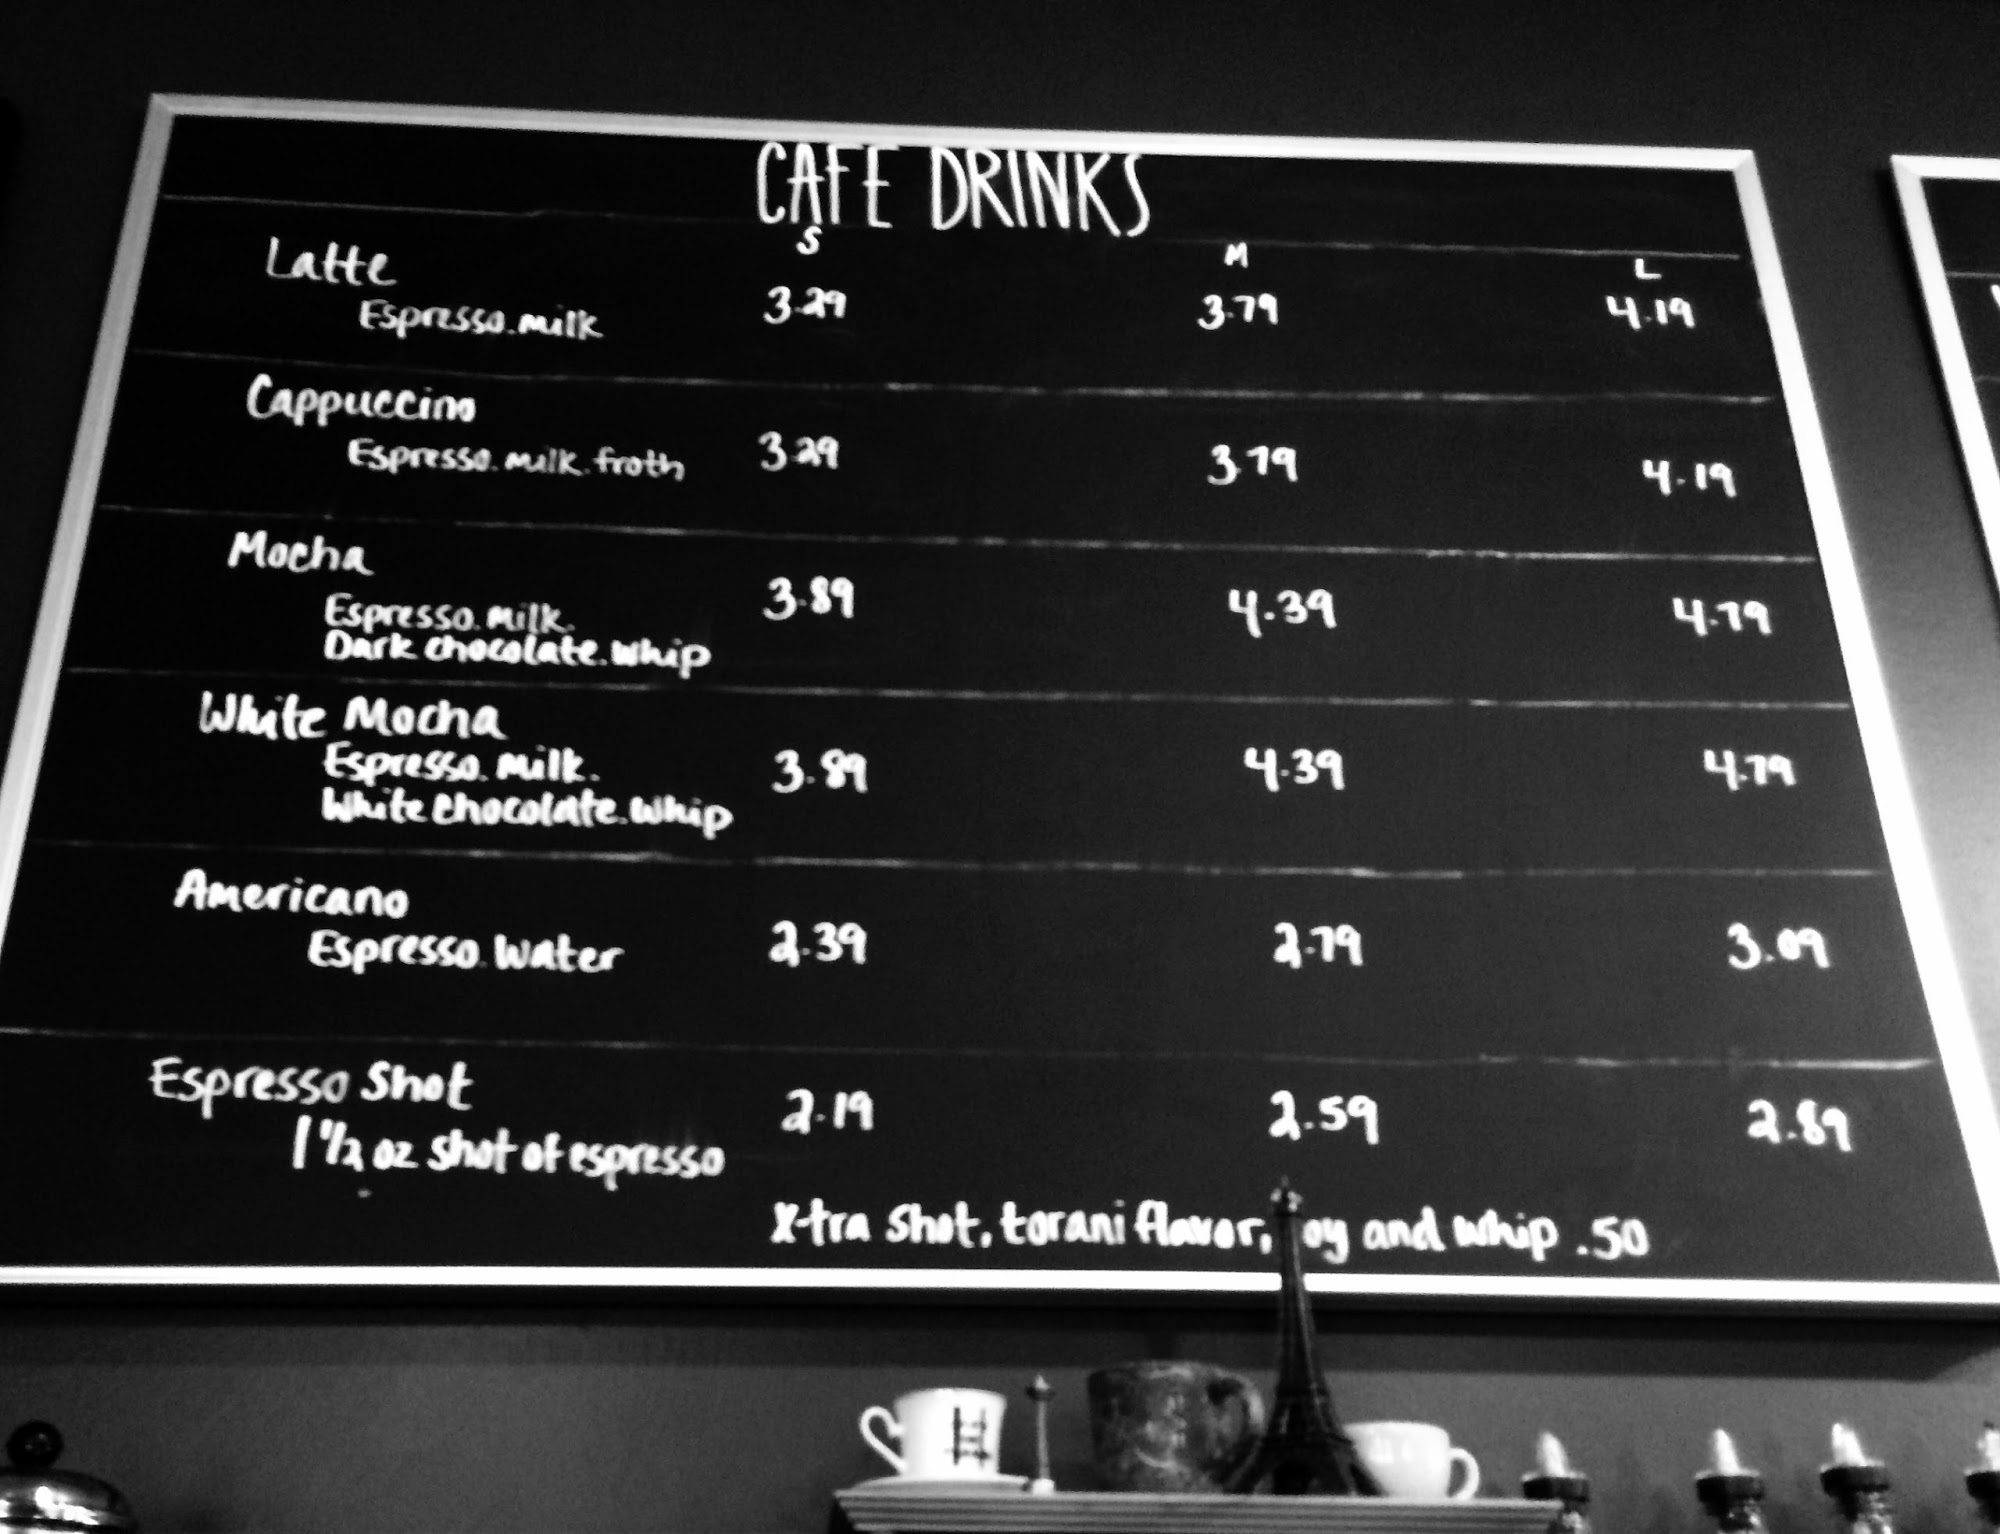 CAFE DRINKS
S M L
Latte
Espresso.milk 3.29 3.79 4.19
Cappuccino
Espresso.milk.froth 3.29 3.79 4.19
Mocha
Espresso.milk. 3.89 4.39 4.79
Dark chocolate.whip
White Mocha
Espresso.milk. 3.89 4.39 4.79
White chocolate.whip
Americano
Espresso.Water 2.39 2.79 3.09
Espresso Shot
1 1/2 oz shot of espresso 2.19 2.59 2.89
X-tra shot, torani flavor, oy and whip .50